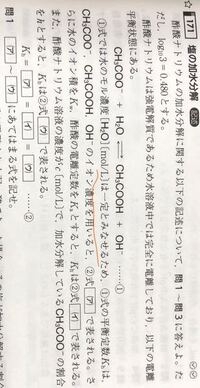 171 塩の加水分解
酢酸ナトリウムの加水分解に関する以下の記述について，問1～問3に答えよ。た
だし，log₁₀3＝0.480とする。
酢酸ナトリウムは強電解質であるため水溶液中では完全に電離しており，以下の電離
平衡状態にある。
CH₃COO⁻ ＋ H₂O ⇄ CH₃COOH ＋ OH⁻ ……①
①式では水のモル濃度[H₂O][mol/L]は一定とみなせるため，①式の平衡定数Kₕは
CH₃COO⁻，CH₃COOH，OH⁻のイオン濃度を用いると，②式 ア で表される。さ
らに水のイオン積をKw，酢酸の電離定数をKaとすると，Kₕは②式 イ で表される。
また，酢酸ナトリウム水溶液の濃度がc[mol/L]で，加水分解しているCH₃COO⁻の割合
をhとすると，Kₕは②式 ウ で表される。
Kₕ＝ ア ＝ イ ＝ ウ ……②
問1 ア ～ ウ にあてはまる式を記せ。